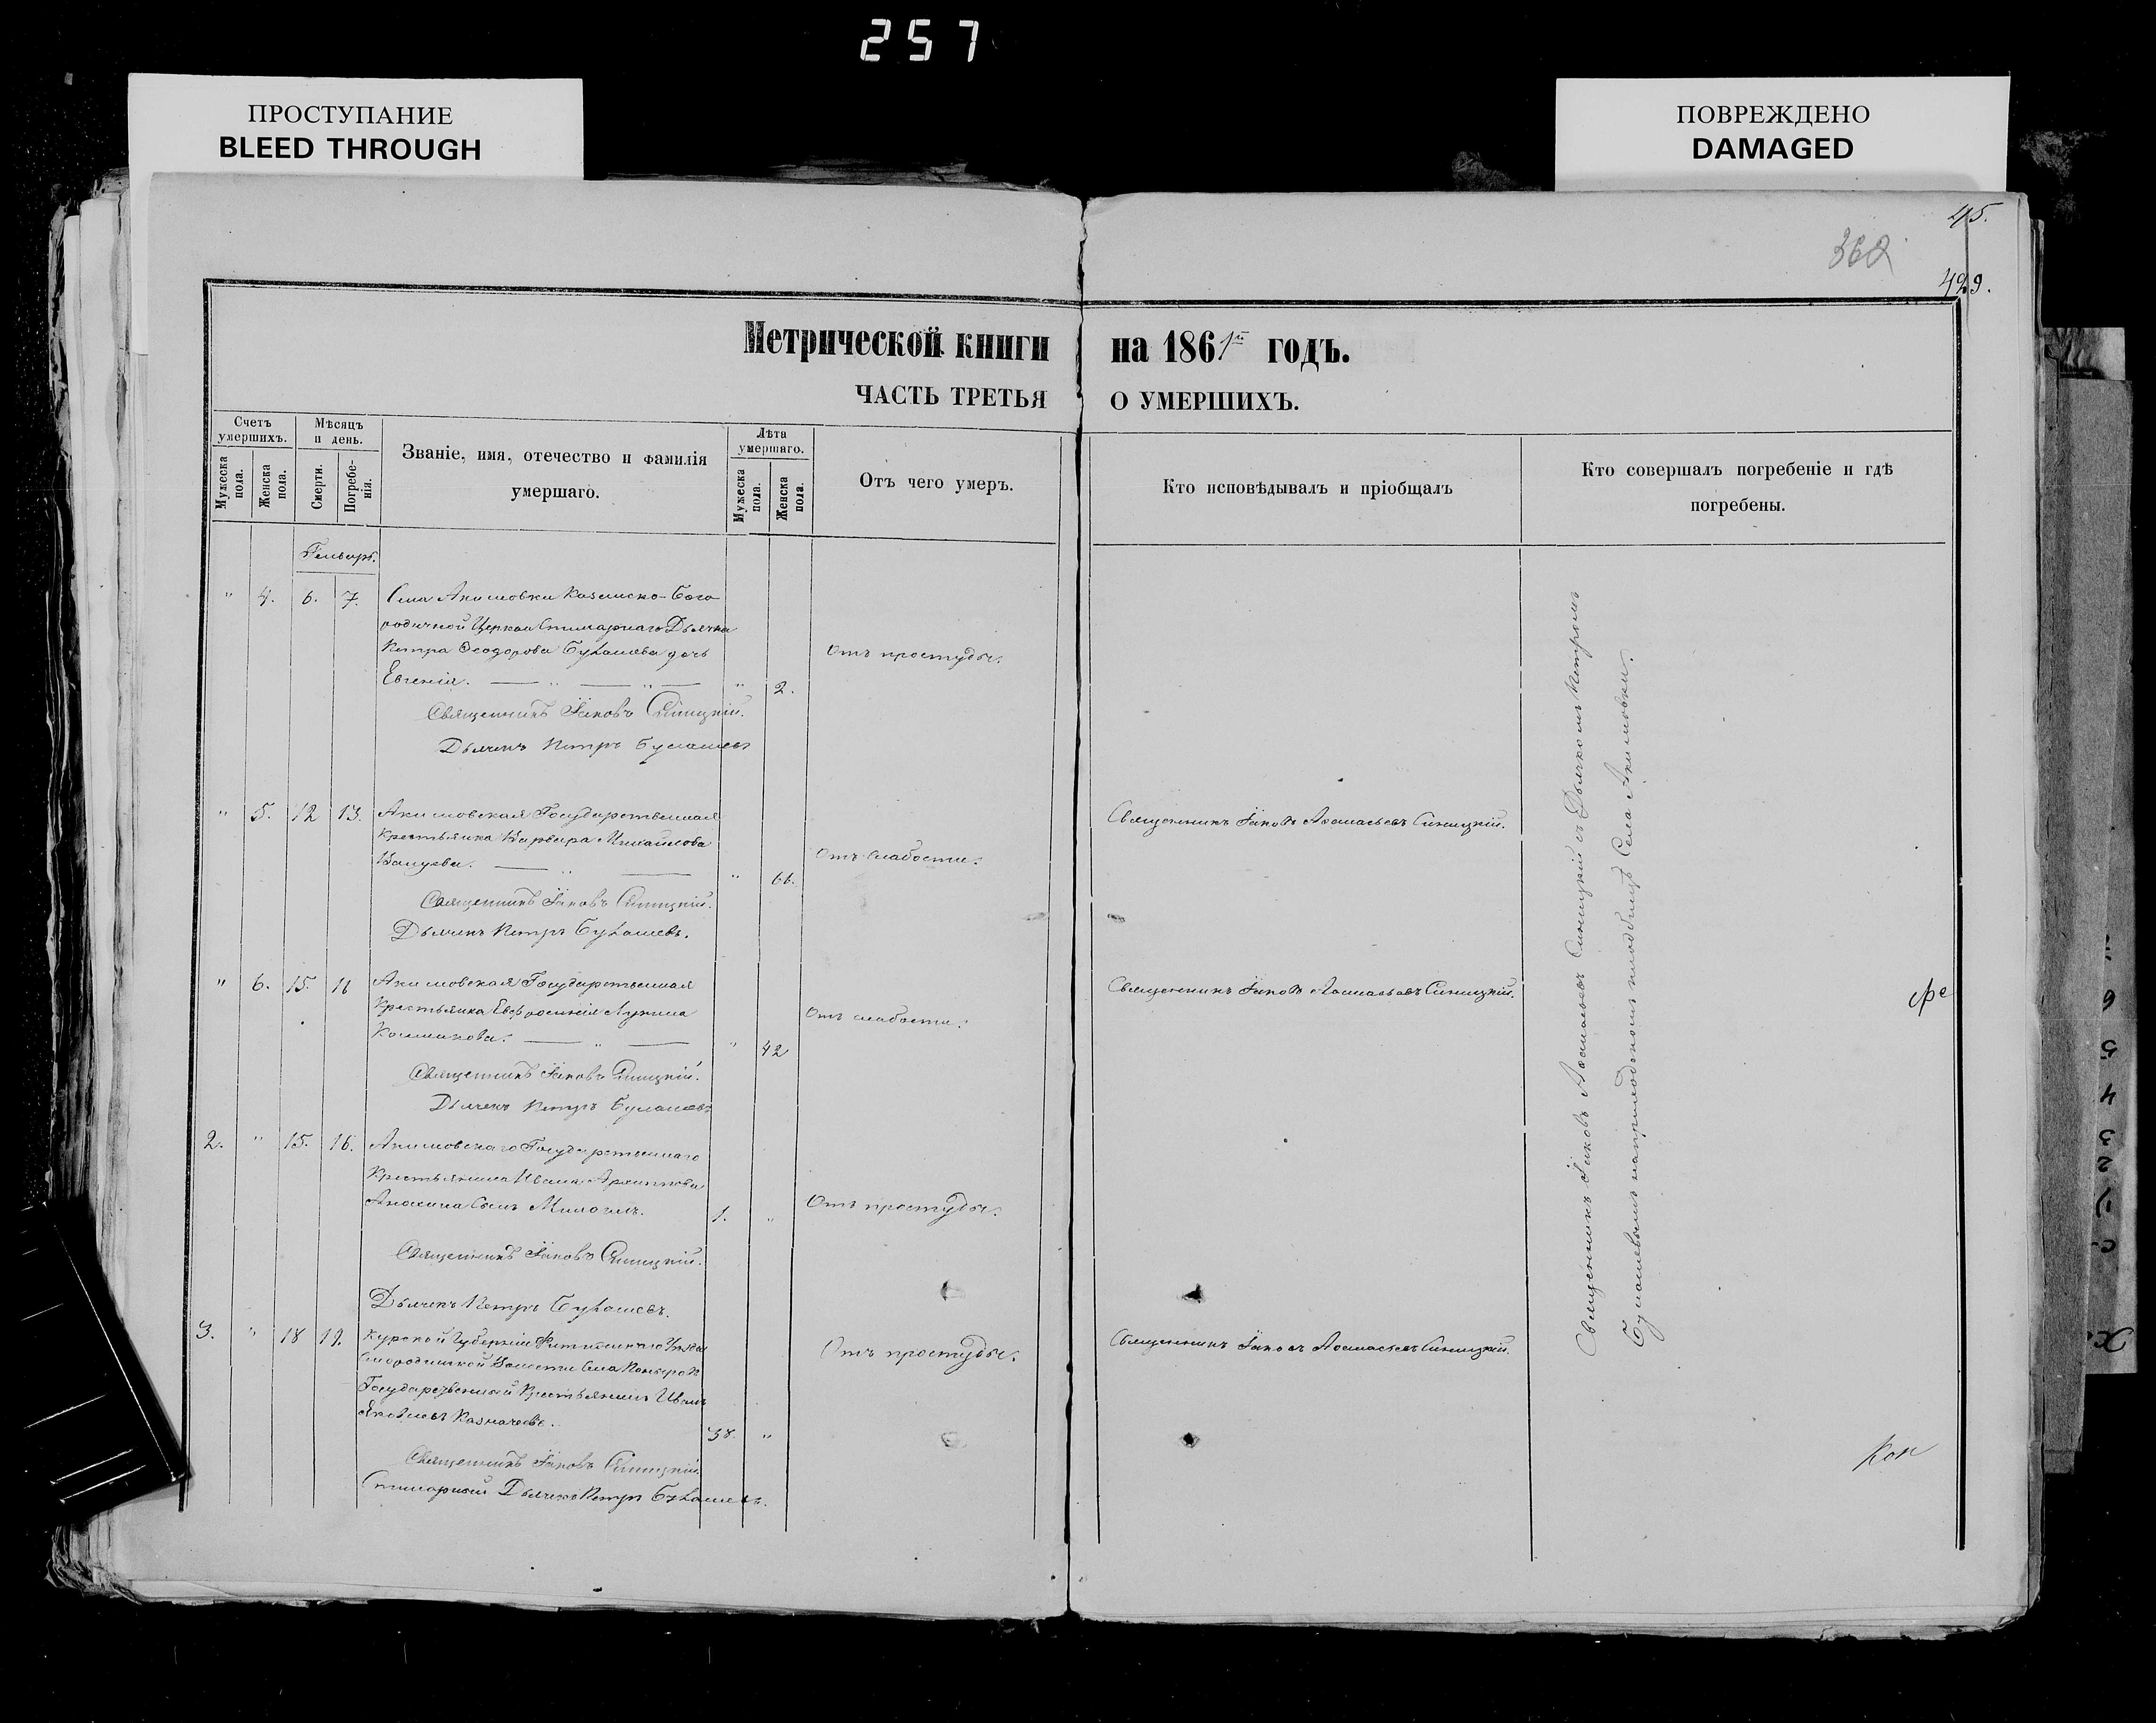 257
ПРОСТУПАНИЕ
BLEED THROUGH
ПОВРЕЖДЕНО
DAMAGED
45.
362
429.
Метрической книги на 1861й годъ.
ЧАСТЬ ТРЕТЬЯ О УМЕРШИХЪ.
Счетъ умершихъ.
Мужеска пола.
Женска пола.
Мѣсяцъ и день.
Смерти.
Погребенія.
Званіе, имя, отечество и фамилія
умершаго.
Лѣта умершаго.
Мужеска пола.
Женска пола.
Отъ чего умеръ.
Кто исповѣдывалъ и пріобщалъ
Кто совершалъ погребеніе и гдѣ
погребены.
Генварь.
" 4. 6. 7. Села Акимовки Казанско-Бого
родичной Церкви Дьячка
Петра Ѳеодорова Булашева дочь
Евгенія. " 2. Отъ простуды.
Священникъ Іаковъ Синицкій.
Дьячекъ Петръ Булашевъ
" 5. 12 13. Акимовская Государственная
Крестьянка Варвара Михайлова
" 66. Отъ слабости.
Священникъ Іаковъ Аѳанасьевъ Синицкій.
Священникъ Іаковъ Синицкій.
Дьячекъ Петръ Булашевъ.
" 6. 15. 16 Акимовская Государственная
Крестьянка Евфросинія Лукина
" 42 Отъ слабости.
Священникъ Іаковъ Аѳанасьевъ Синицкій.
Священникъ Іаковъ Синицкій.
Дьячекъ Петръ Булашевъ
2. " 15. 16. Акимовскаго Государственнаго
Крестьянина Ивана Архипова
Анохина Сынъ 1. " Отъ простуды.
Священникъ Іаковъ Синицкій.
Дьячекъ Петръ Булашевъ.
3. " 18 19. Курской Губерніи Уѣзда
Волости Села
Государственный Крестьянинъ Иванъ
Яковлевъ Казначеевъ. 38. " Отъ простуды.
Священникъ Іаковъ Аѳанасьевъ Синицкій.
Священникъ Іаковъ Синицкій.
Дьячекъ Петръ Булашевъ.
Священникъ Іаковъ Аѳанасьевъ Синицкій съ Дьячкомъ Петромъ
Булашевымъ на приходскомъ кладбищѣ Села Акимовки.